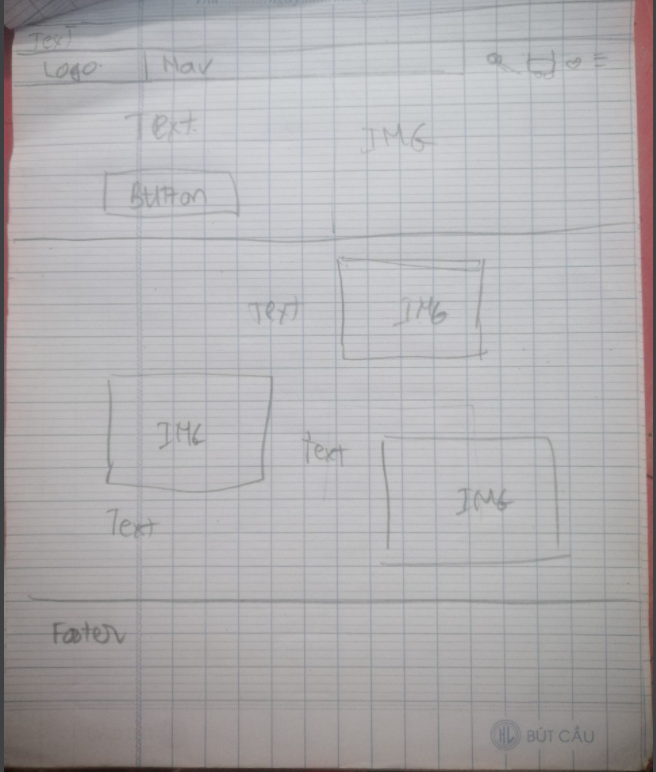 Text
Logo Nav
Text
IMG
Button
Text
IMG
IMG
Text
Text
IMG
Footer
HL BÚT CÂU